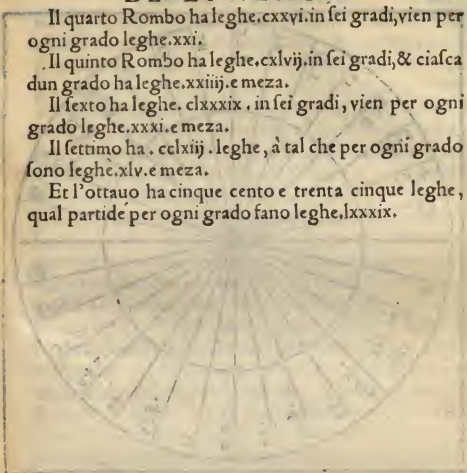 Il quarto Rombo ha leghe.cxxvi.in ſei gradi,vien per
ogni grado leghe.xxi.
Il quinto Rombo ha leghe.cxlvij.in ſei gradi,& ciaſca
dun grado ha leghe.xxiiij.e meza.
Il ſexto ha leghe. clxxxix . in ſei gradi, vien per ogni
grado leghe.xxxi.e meza.
Il ſettimo ha . cclxiij . leghe, à tal che per ogni grado
ſono leghe.xlv.e meza.
Et l'ottauo ha cinque cento e trenta cinque leghe,
qual partide per ogni grado fano leghe.lxxxix.